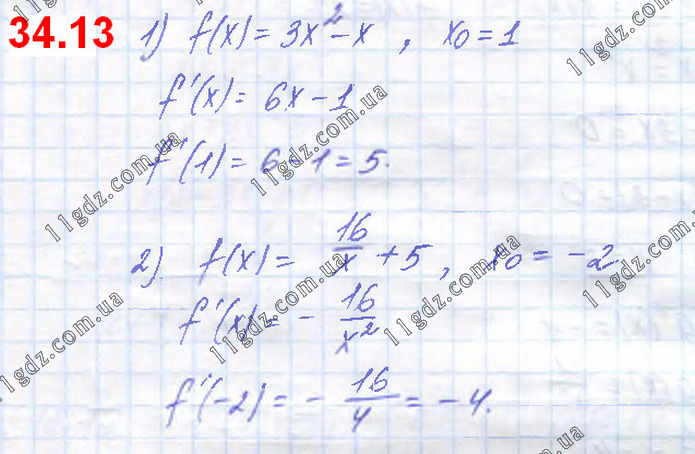 34.13 1) f(x) = 3x² - x , x₀ = 1
f'(x) = 6x - 1
f'(1) = 6 - 1 = 5.
2) f(x) = 16/x + 5 , x₀ = -2
f'(x) = - 16/x²
f'(-2) = - 16/4 = -4.
11gdz.com.ua
11gdz.com.ua
11gdz.com.ua
11gdz.com.ua
11gdz.com.ua
11gdz.com.ua
11gdz.com.ua
11gdz.com.ua